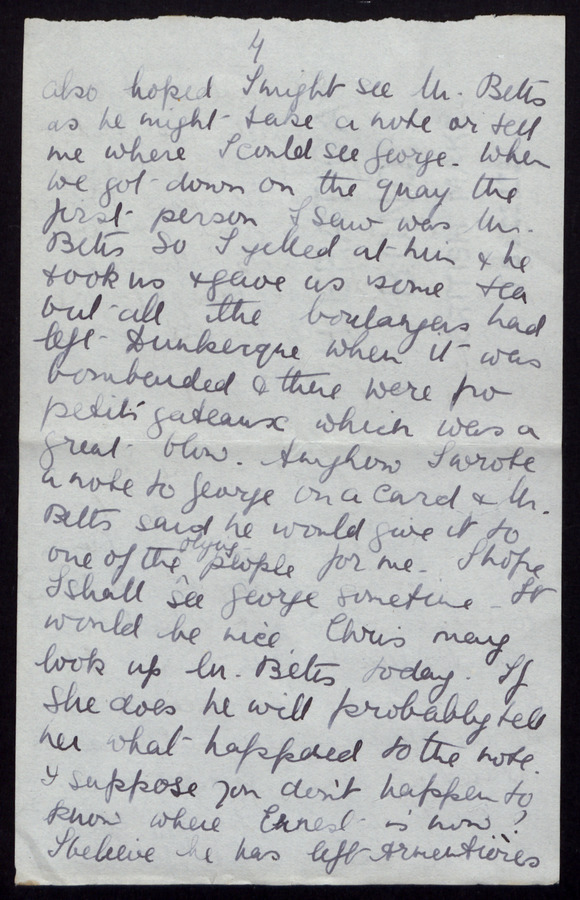 4
also hoped I might see Mr. Betts
as he might take a note or tell
me where I could see George. When
we got down on the quay the
first person I saw was Mr.
Betts So I yelled at him & he
took us & gave us some tea
but all the boulangers had
left Dunkerque when it was
bombarded & there were no
petits gateaux which was a
great blow. Anyhow I wrote
a note to George on a card & Mr.
Betts said he would give it to
one of the people for me. I hope
I shall see George sometime. It
would be nice. Chris may
look up Mr. Betts today. If
She does he will probably tell
her what happened to the note.
I suppose you don't happen to
know where Ernest is now?
I believe he has left Armentières